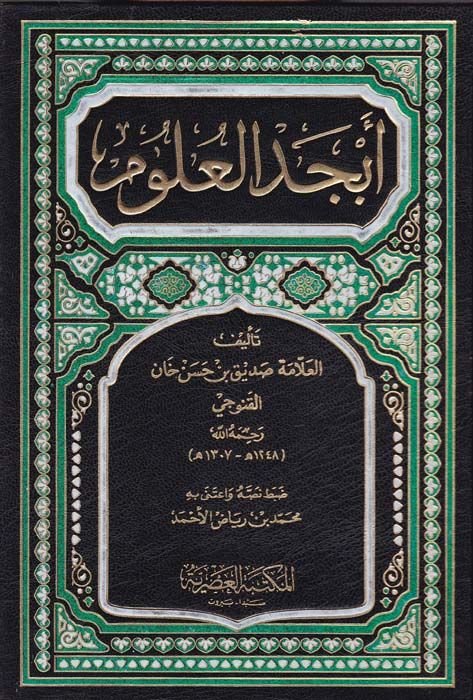 أَبْجَدُ الْعُلُومِ
تَأليف
العَلّامَة صَديق بن حَسَن خَان
القنوجي
رَحِمَهُ اللهُ
(١٢٤٨هـ - ١٣٠٧هـ)
ضَبَطَ نَصَّهُ وَاعتَنى بِهِ
محمّد بن رياض الأحمد
المكتبة العصرية
صيدا - بيروت